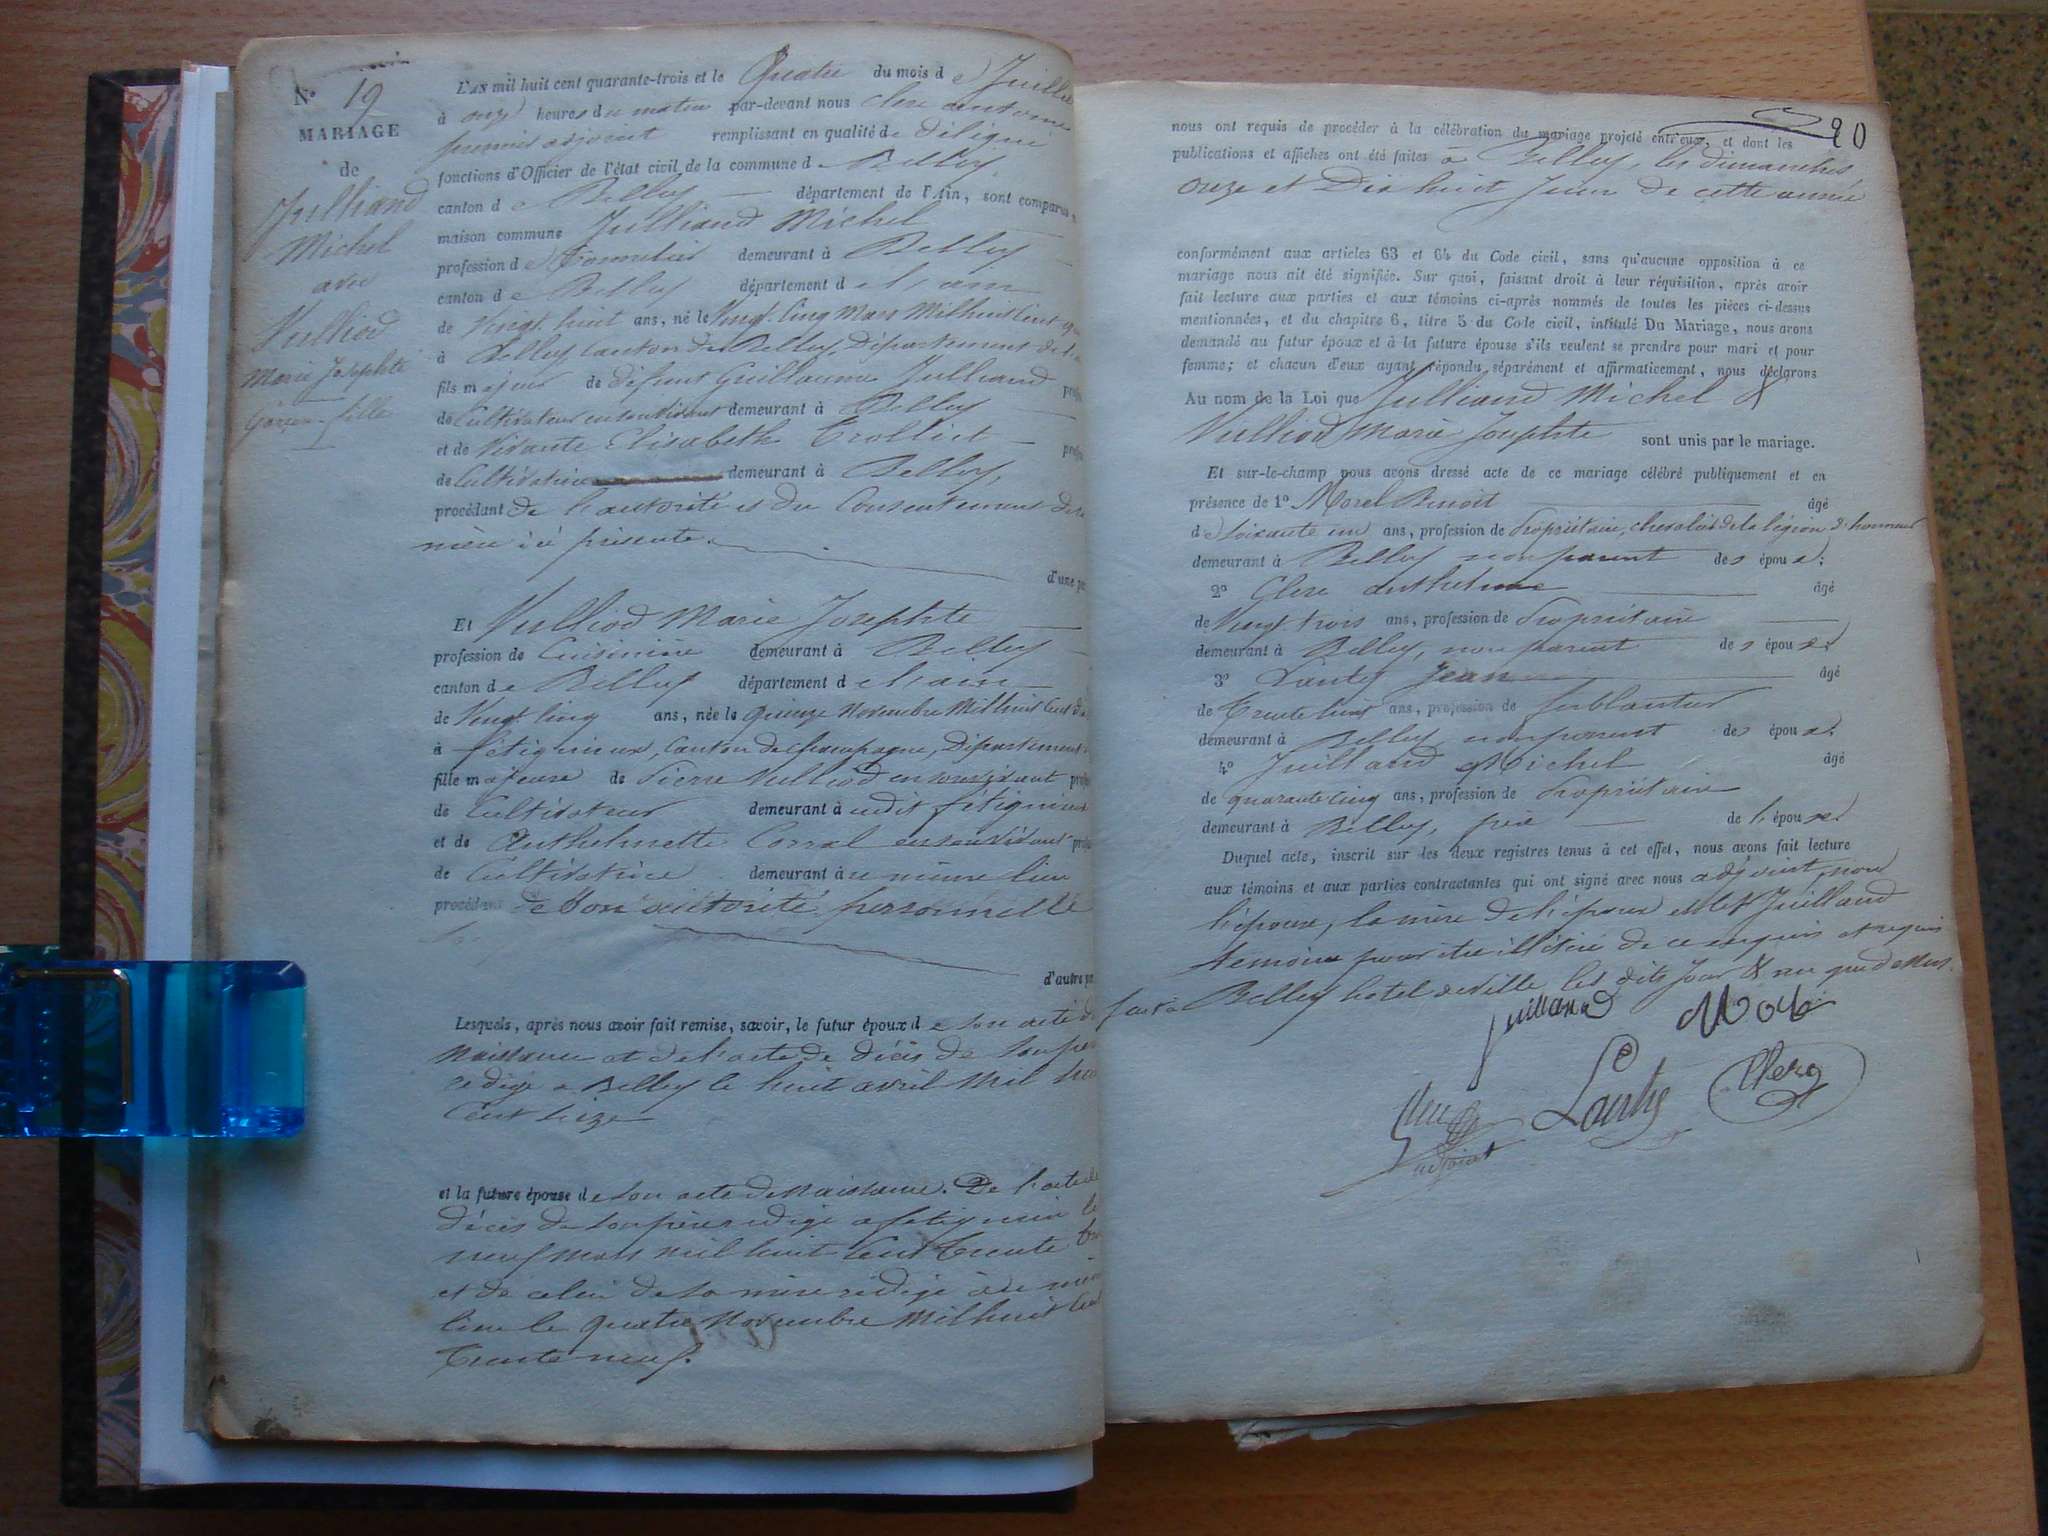 N° 19
MARIAGE
de
Julliand
Michel
avec
Vulliod
Marie Josephte
Garçon fille
L'AN mil huit cent quarante-trois et le Quatre du mois de Juillet
à onze heures du matin par-devant nous Clerc antoine
premier adjoint remplissant en qualité de délégué
fonctions d'Officier de l'état civil de la commune de Belley
canton de Belley département de l'Ain, sont comparus
maison commune Julliand Michel
profession de Tonnelier demeurant à Belley
canton de Belley département de l'ain
de Vingt huit ans, né le Vingt Cinq Mars Mil huit Cent
à Belley Canton de Belley, Département de
fils majeur de défunt Guillaume Julliand
de Cultivateur en son vivant demeurant à Belley
et de Vivante Elisabeth Trolliet
de Cultivatrice demeurant à Belley,
procédant de l'autorité et du Consentement de
mère ici présente.
d'une
Et Vulliod Marie Josephte
profession de Cuisinière demeurant à Belley
canton de Belley département de l'ain
de Vingt Cinq ans, née le quinze Novembre Mil huit Cent
à fétignieux, Canton de Champagne, Département
fille majeure de Pierre Vulliod en son vivant
de Cultivateur demeurant à audit fétignieux
et de Anthelmette Corral en son vivant
de Cultivatrice demeurant à même lieu
procédant de son autorité personnelle
d'autre
Lesquels, après nous avoir fait remise, savoir, le futur époux de son acte de
Naissance et de l'acte de décès de son père
rédigé a Belley le huit avril Mil huit
Cent
et la future épouse de son acte de Naissance. De l'acte de
décès de son père rédigé a fetignieu le
neuf mars mil huit Cent trente
et de celui de sa mère rédigé
lieu le quatre Novembre Mil huit Cent
Trente neuf.
20
nous ont requis de procéder à la célébration du mariage projeté entr'eux, et dont les
publications et affiches ont été faites à Belley, les dimanches
onze et Dix huit Juin de cette année
conformément aux articles 63 et 64 du Code civil, sans qu'aucune opposition à ce
mariage nous ait été signifiée. Sur quoi, faisant droit à leur réquisition, après avoir
fait lecture aux parties et aux témoins ci-après nommés de toutes les pièces ci-dessus
mentionnées, et du chapitre 6, titre 5 du Code civil, intitulé Du Mariage, nous avons
demandé au futur époux et à la future épouse s'ils veulent se prendre pour mari et pour
femme; et chacun d'eux ayant répondu séparément et affirmativement, nous déclarons
Au nom de la Loi que Julliand Michel &
Vulliod Marie Josephte sont unis par le mariage.
Et sur-le-champ nous avons dressé acte de ce mariage célébré publiquement et en
présence de 1° Morel Benoit âgé
de soixante un ans, profession de Propriétaire, chevalier de la légion d'honneur
demeurant à Belley non parent des époux:
2° Clerc Anthelme âgé
de Vingt trois ans, profession de Propriétaire
demeurant à Belley, non parent des époux
3° Lanby Jean âgé
de Trente ans, profession de ferblantier
demeurant à Belley non parent des époux
4° Juilland Michel âgé
de quarante cinq ans, profession de Propriétaire
demeurant à Belley, de l'époux
Duquel acte, inscrit sur les deux registres tenus à cet effet, nous avons fait lecture
aux témoins et aux parties contractantes qui ont signé avec nous adjoint, non
l'épouse, la mère de l'époux et le Juilland
témoin pour être illétéré de ce enquis et requis
fait à Belley hotel de ville les dits Jour & an que dessus.
juilland
Clerc
adjoint
Clerc